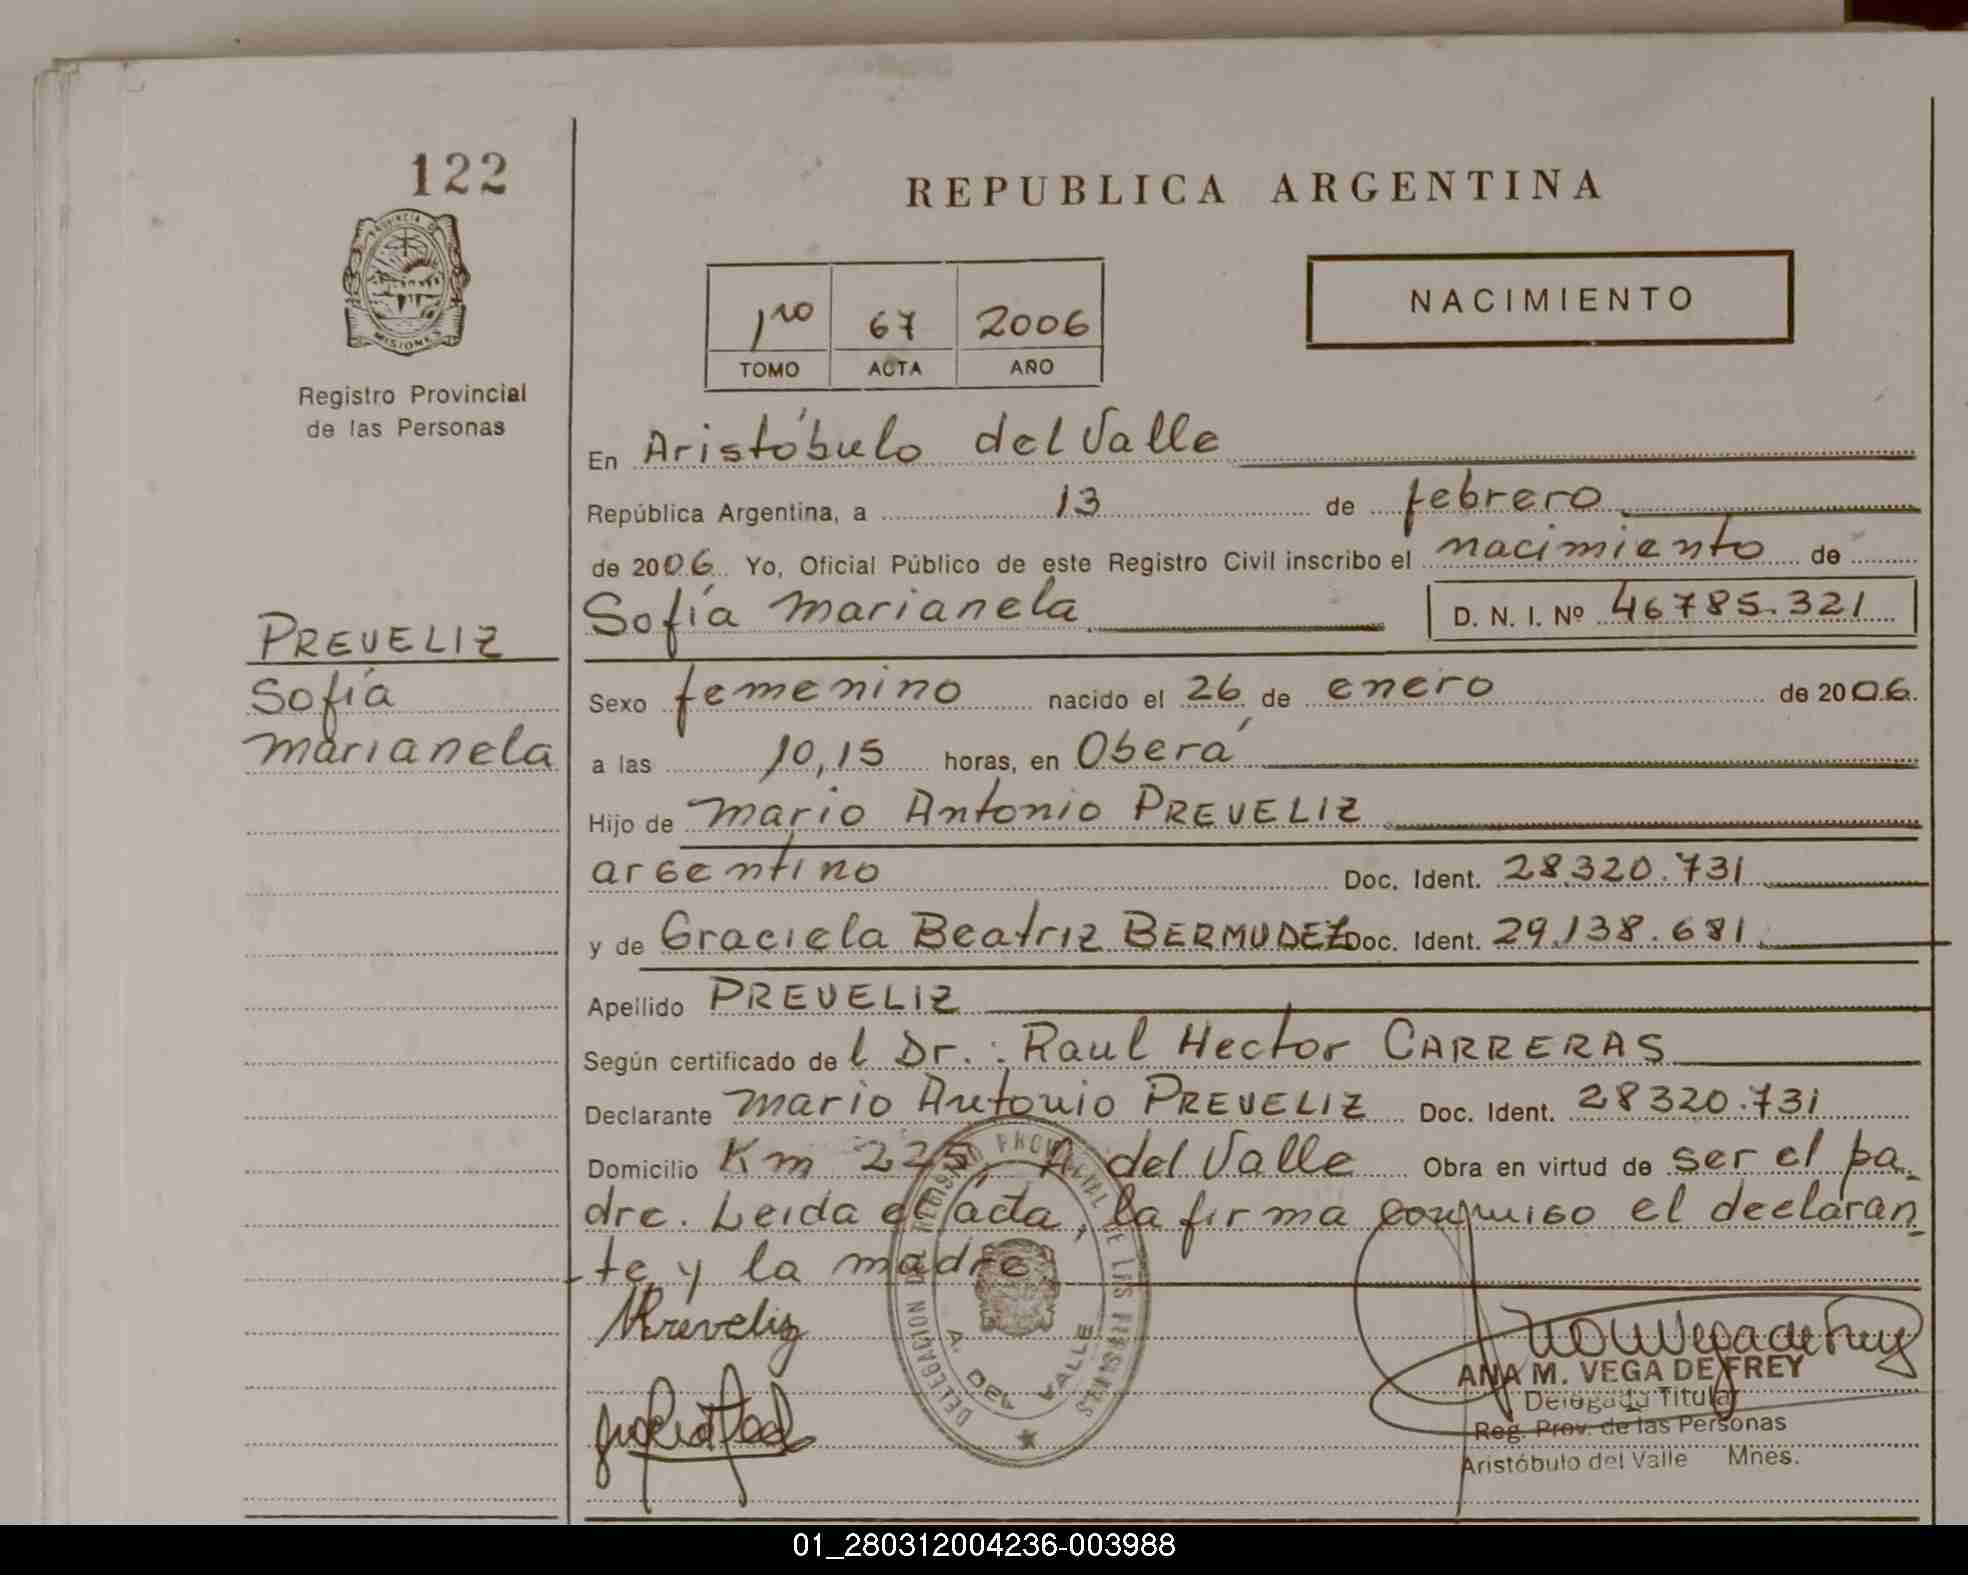 122
PROVINCIA DE
MISIONES
Registro Provincial
de las Personas
PREVELIZ
Sofía
Marianela
REPUBLICA ARGENTINA
NACIMIENTO
1ro 67 2006
TOMO ACTA AÑO
En Aristóbulo del Valle
República Argentina, a 13 de febrero
de 2006. Yo, Oficial Público de este Registro Civil inscribo el nacimiento de
Sofía Marianela D. N. I. Nº 46785.321
Sexo femenino nacido el 26 de enero de 2006.
a las 10,15 horas, en Oberá
Hijo de Mario Antonio PREVELIZ
argentino Doc. Ident. 28.320.731
y de Graciela Beatriz BERMUDEZ Doc. Ident. 29.138.681
Apellido PREVELIZ
Según certificado de l Dr.: Raul Hector CARRERAS
Declarante Mario Antonio PREVELIZ Doc. Ident. 28320.731
Domicilio Km 225, A del Valle Obra en virtud de ser el pa-
dre. Leida el acta, la firma conmigo el declaran-
te y la madre
Preveliz
DELEGACION DE REGISTRO PROVINCIAL DE LAS PERSONAS
A. DEL VALLE
ANA M. VEGA DE FREY
Delegada Titular
Reg. Prov. de las Personas
Aristóbulo del Valle Mnes.
01_280312004236-003988